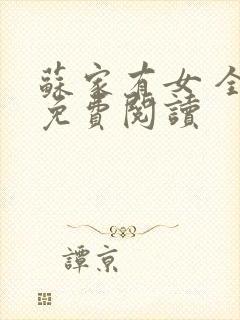 蘇家有女 全
免費閱讀
譚京